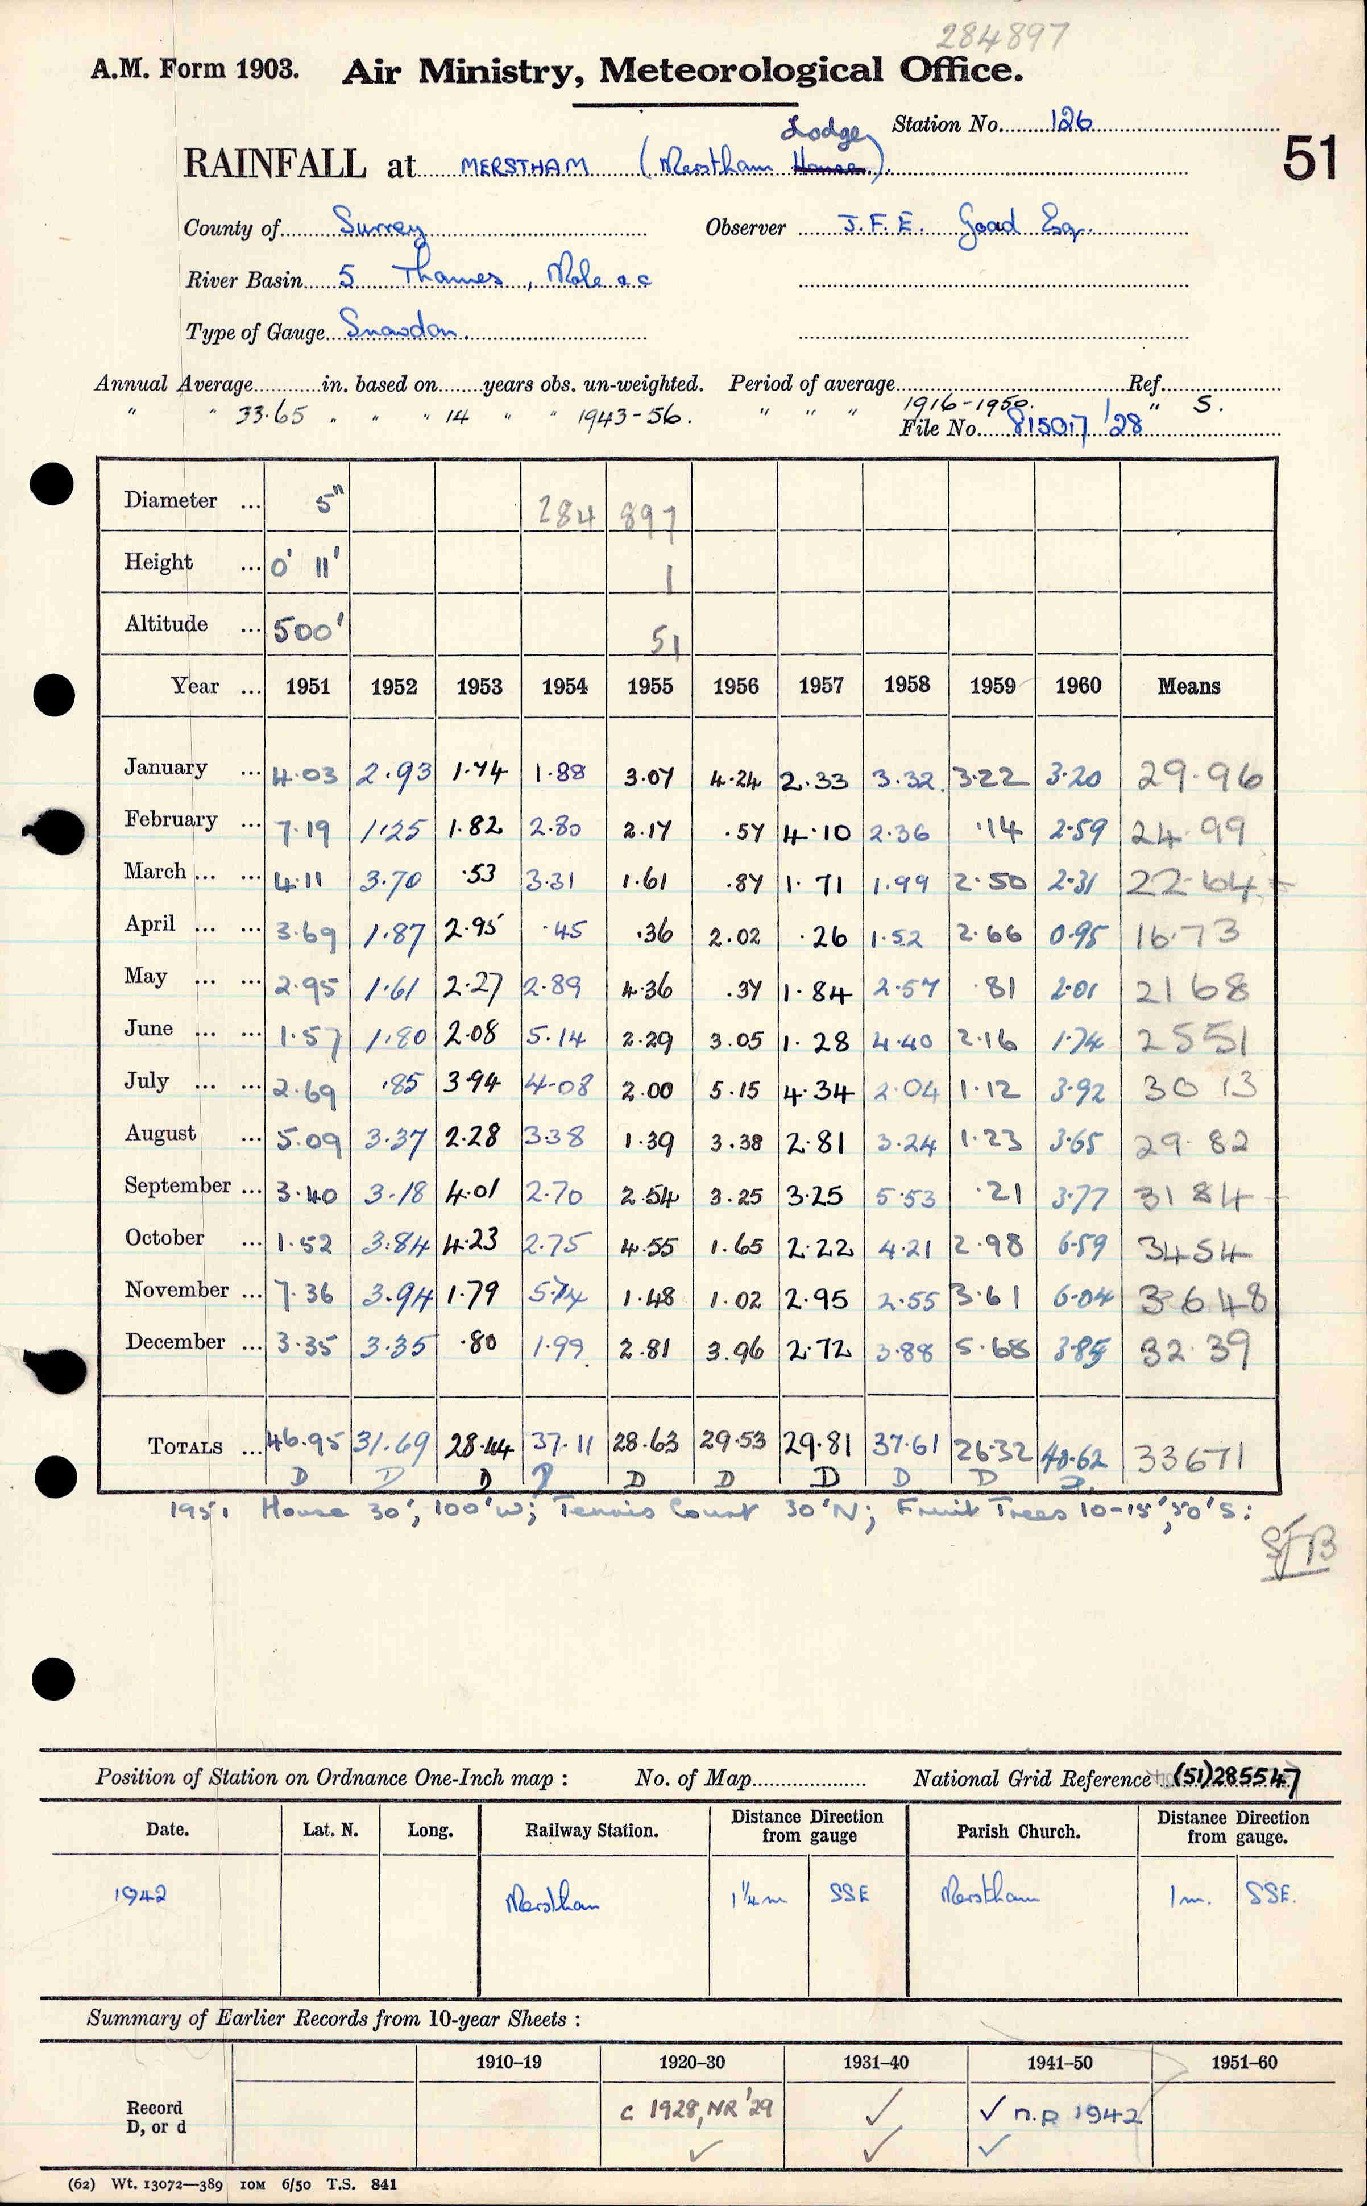 284897
A.M. Form 1903. Air Ministry, Meteorological Office.
Station No. 126
51
RAINFALL at MERSTHAM (Merstham House Lodge).
County of Surrey Observer J.F.E. Goad Esq.
River Basin 5 Thames, Mole &c
Type of Gauge Snowdon.
Annual Average in. based on years obs. un-weighted. Period of average Ref.
" " 33.65 " " " 14 " " 1943-56. " " " 1916-1950. " S.
File No. 815017/28
Diameter ... 5" 284 897
Height ... 0' 11' 1
Altitude ... 500' 51
Year ... 1951 1952 1953 1954 1955 1956 1957 1958 1959 1960 Means
January ... 4.03 2.93 1.74 1.88 3.07 4.24 2.33 3.32 3.22 3.20 29.96
February ... 7.19 1.25 1.82 2.80 2.17 .57 4.10 2.36 .14 2.59 24.99
March ... ... 4.11 3.70 .53 3.31 1.61 .87 1.71 1.99 2.50 2.31 22.64
April ... ... 3.69 1.87 2.95 .45 .36 2.02 .26 1.52 2.66 0.95 16.73
May ... ... 2.95 1.61 2.27 2.89 4.36 .37 1.84 2.57 .81 2.01 21 68
June ... ... 1.57 1.80 2.08 5.14 2.29 3.05 1.28 4.40 2.16 1.74 25 51
July ... ... 2.69 .85 3.94 4.08 2.00 5.15 4.34 2.04 1.12 3.92 30 13
August ... 5.09 3.37 2.28 3.38 1.39 3.38 2.81 3.24 1.23 3.65 29.82
September ... 3.40 3.18 4.01 2.70 2.54 3.25 3.25 5.53 .21 3.77 31 84
October ... 1.52 3.84 4.23 2.75 4.55 1.65 2.22 4.21 2.98 6.59 34 54
November ... 7.36 3.94 1.79 5.74 1.48 1.02 2.95 2.55 3.61 6.04 36 48
December ... 3.35 3.35 .80 1.99 2.81 3.96 2.72 3.88 5.68 3.85 32.39
TOTALS ... 46.95 31.69 28.44 37.11 28.63 29.53 29.81 37.61 26.32 40.62 33671
D D D D D D D D D D
1951 House 30', 100'W; Tennis Court 30'N; Fruit Trees 10-15', 50'S:
SFB
Position of Station on Ordnance One-Inch map : No. of Map National Grid Reference (51)285547
Date. Lat. N. Long. Railway Station. Distance Direction from gauge Parish Church. Distance Direction from gauge.
1942 Merstham 1¼m SSE Merstham 1m. SSE.
Summary of Earlier Records from 10-year Sheets :
1910–19 1920–30 1931–40 1941–50 1951–60
Record D, or d c 1928, NR '29 ✓ ✓ n.R 1942
✓ ✓ ✓
(62) Wt. 13072—389 10M 6/50 T.S. 841